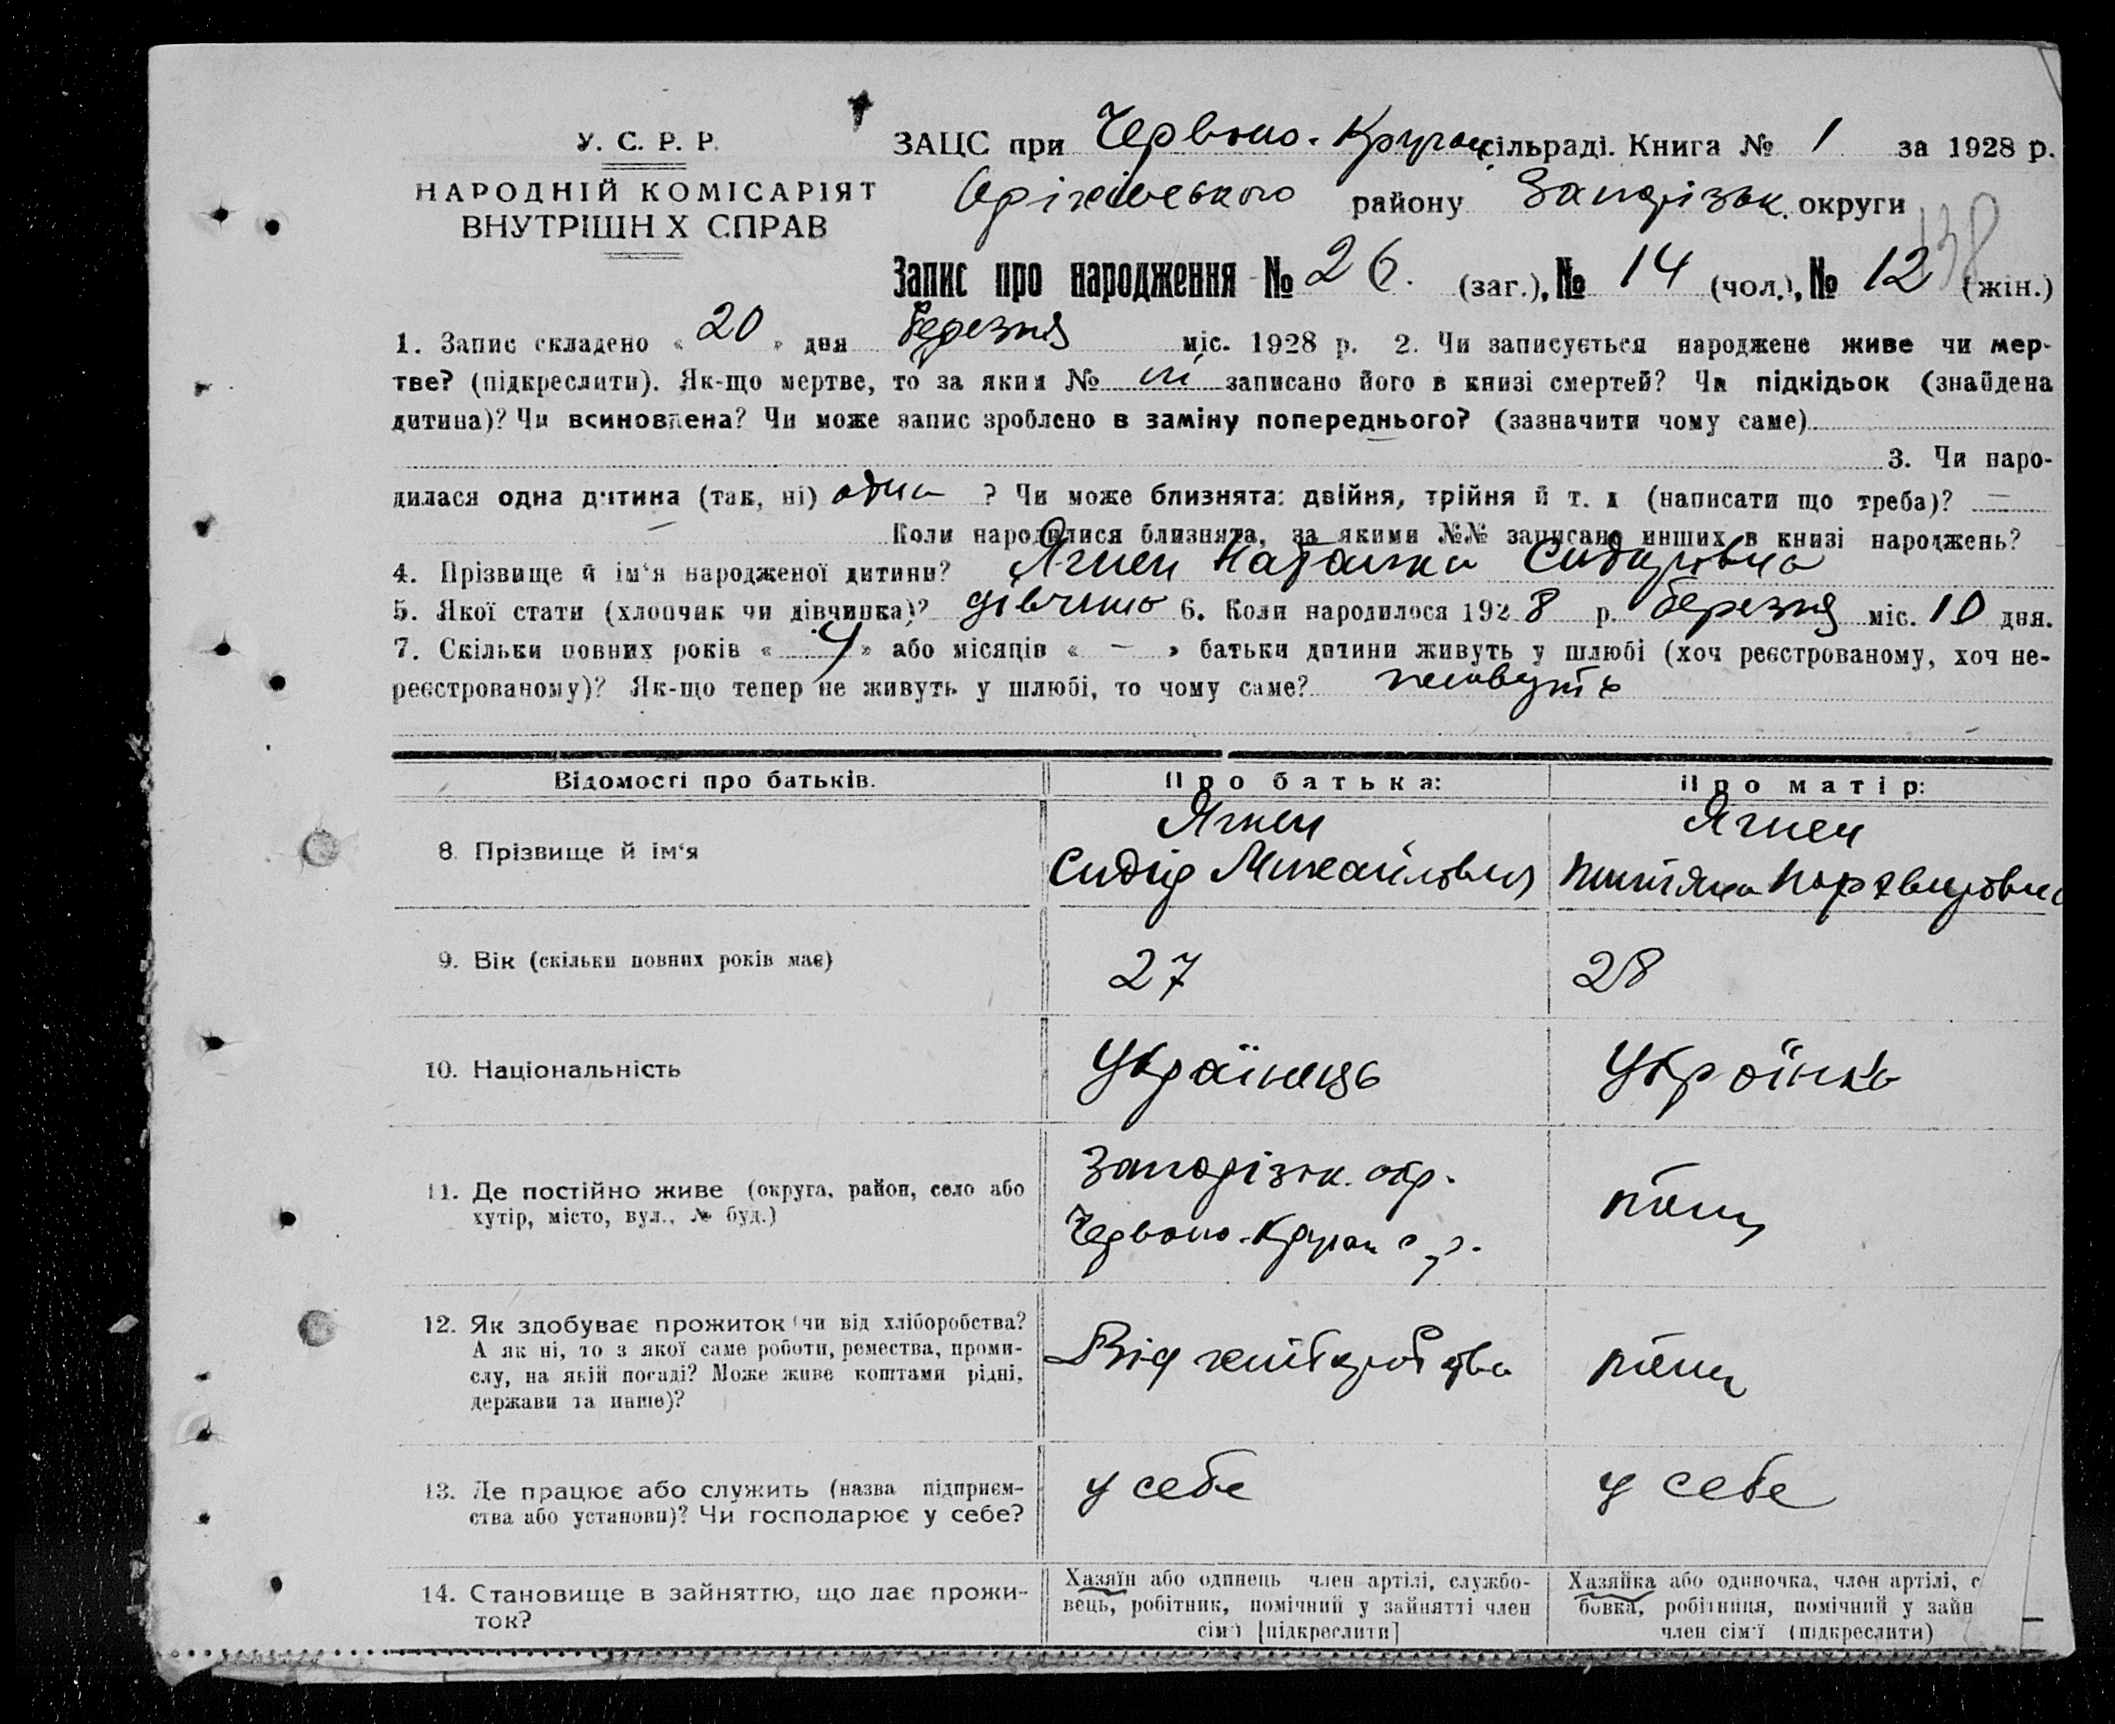 У. С. Р. Р.
НАРОДНІЙ КОМІСАРІЯТ
ВНУТРІШН Х СПРАВ
ЗАЦС при Червоно-Круган. сільраді. Книга № 1 за 1928 р.
Оріхівського району Запоріжк. округи
138
Запис про народження № 26. (заг.), № 14 (чол.), № 12 (жін.)
1. Запис складено « 20 » дня березня міс. 1928 р. 2. Чи записується народжене живе чи мер-
тве? (підкреслити). Як-що мертве, то за яким № ні записано його в книзі смертей? Чи підкідьок (знайдена
дитина)? Чи всиновлена? Чи може запис зроблено в заміну попереднього? (зазначити чому саме)
3. Чи наро-
дилася одна дитина (так, ні) одна ? Чи може близнята: двійня, трійня й т. д (написати що треба)? —
— Коли народилися близнята, за якими №№ записано инших в книзі народжень?
4. Прізвище й ім'я народженої дитини? Ягнец Наталка Сидорівна
5. Якої стати (хлопчик чи дівчинка)? дівчина 6. Коли народилося 1928 р. березня міс. 10 дня.
7. Скільки повних років « 4 » або місяців « — » батьки дитини живуть у шлюбі (хоч реєстрованому, хоч не-
реєстрованому)? Як-що тепер не живуть у шлюбі, то чому саме?
Відомості про батьків. Про батька: Про матір:
8. Прізвище й ім'я
Ягнец
Сидір Михайлович
Ягнец
9. Вік (скільки повних років має) 27 28
10. Національність Українець Українка
11. Де постійно живе (округа, район, село або
хутір, місто, вул., № буд.)
Запорізьк. окр.
Червоно-Круган с/р.
тому
12. Як здобуває прожиток (чи від хліборобства?
А як ні, то з якої саме роботи, ремества, проми-
слу, на якій посаді? Може живе коштами рідні,
держави та инше)?
Від хліборобства
13. Де працює або служить (назва підприєм-
ства або установи)? Чи господарює у себе?
у себе
у себе
14. Становище в зайняттю, що дає прожи-
ток?
Хазяїн або одинець член артілі, службо-
вець, робітник, помічний у зайнятті член
сім'ї [підкреслити]
Хазяйка або одиночка, член артілі, с
бовка, робітниця, помічний у зайн
член сім'ї (підкреслити)